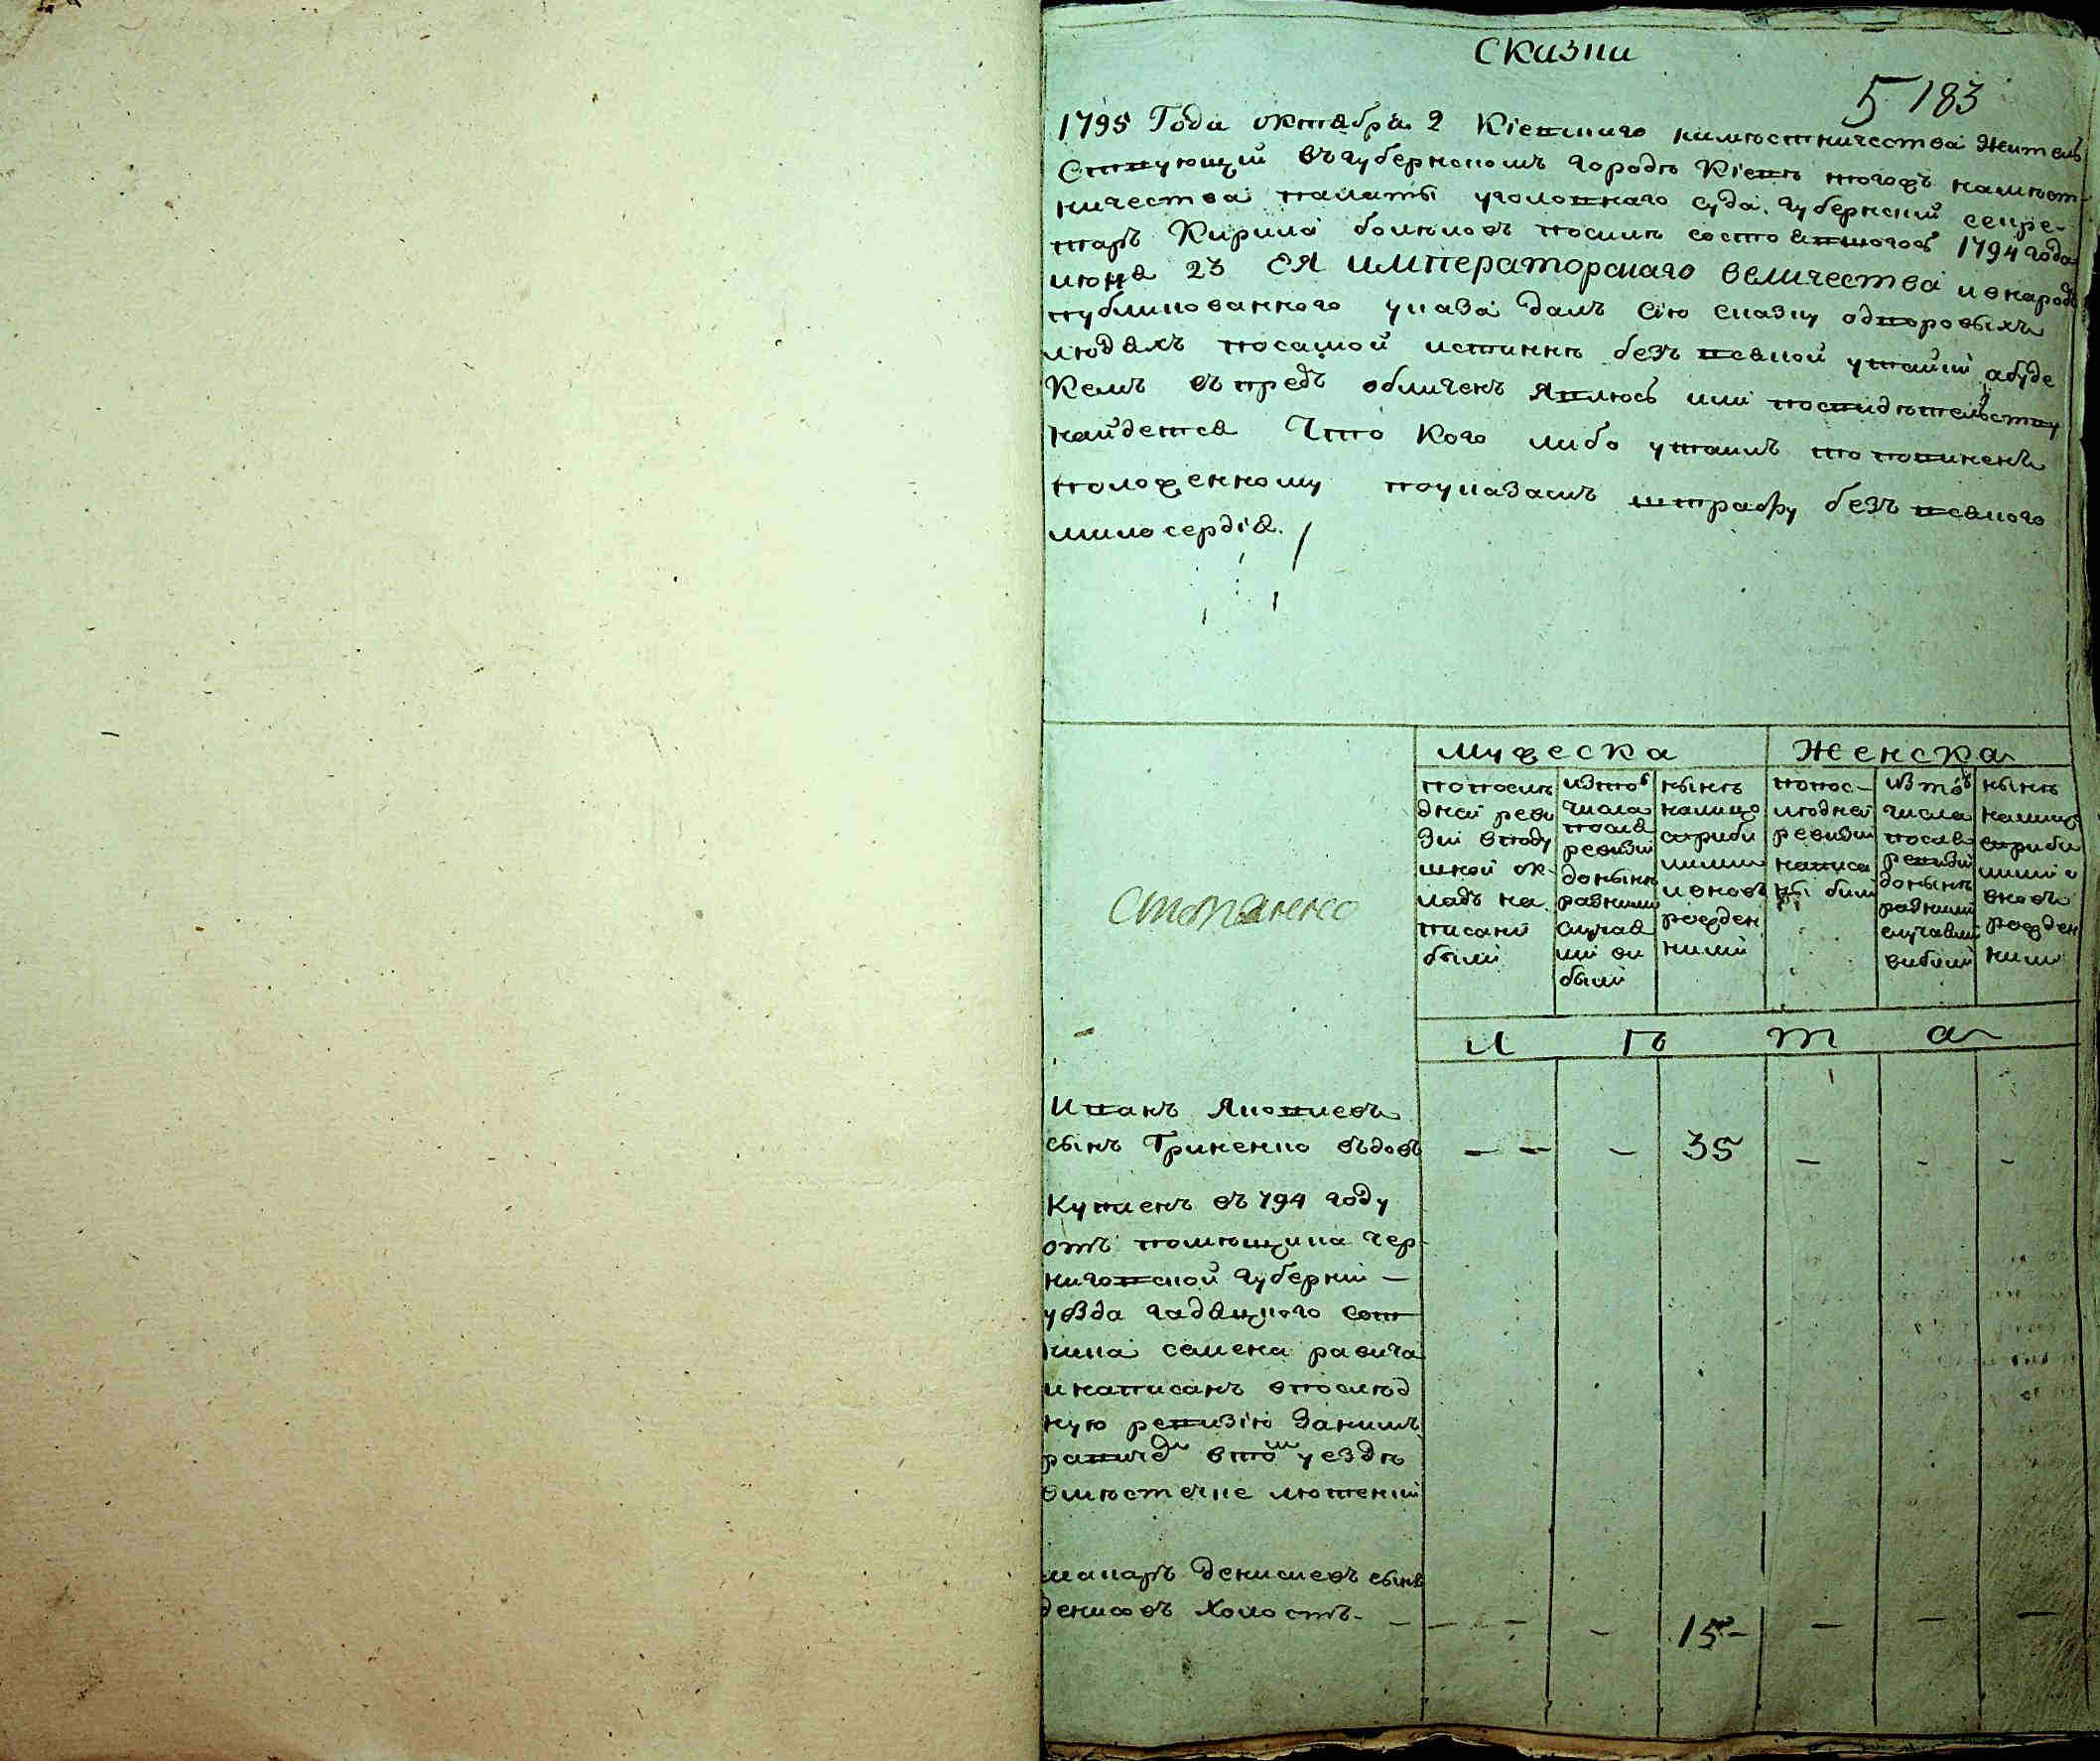 Сказки
5 183
1795 Года октября 2 Кіевскаго намѣстничества жител
ствующій въ губернскомъ городѣ Кіевѣ тогожъ намѣст-
ничества палаты уголовнаго суда губернскій секре-
тарь Кирила посилѣ состоявшогось 1794 года
июня 23 ЕЯ императорскаго величества и внарод
публикованного указа далъ сію сказку о дворовыхъ
людяхъ посамой истиннѣ безъ всякой утайки абуде
кемъ въпредь обличенъ явлюсь или посвидѣтельству
найдется что кого либо утаилъ то повиненъ
положенному поуказамъ штрафу безъ всякого
милосердія.
мужеска женска
попослѣ
дней реви
зіи вподу
шной ок-
ладъ на
писаны
были
изтого
числа
послѣ
ревизіи
донынѣ
разними
случая
ми вы
были
нынѣ
налицо
сприбы
лыми
и вновь
рожден
ними
попос-
лѣдней
ревизіи
написа
ны были
изтого
числа
послѣ
ревизіи
донынѣ
разними
случаями
выбыли
нынѣ
налицо
сприбы
лыми и
вновь
рожден
ними
л ѣ т а
Иванъ Яковлевъ
сынъ Гриненко вдовъ - - - 35 - - -
Купленъ въ 794 году
отъ помѣщика чер-
ниговской губерніи -
уѣзда гадяцкого сот
ника семена равича
и написанъ впослѣд
ную ревизію занимъ
равиче втом уездѣ
вмѣстечке лютенки
макаръ денисовъ сынъ
денисовъ холостъ - - - - 15 - - - -